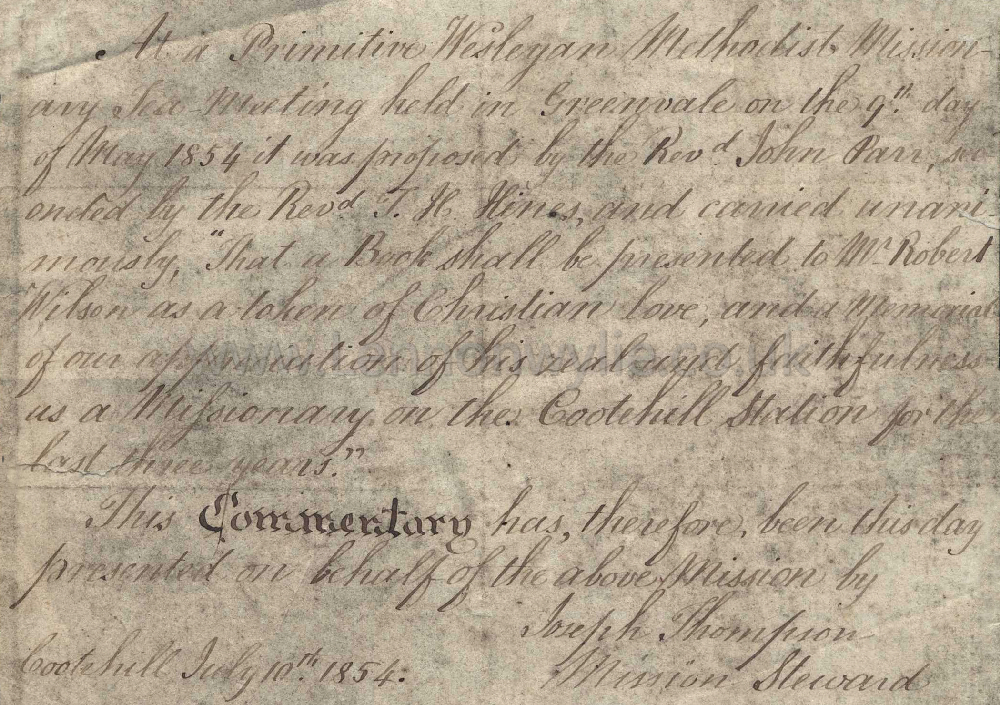 At a Primitive Wesleyan Methodist Mission-
ary Tea-Meeting held in Greenvale on the 9th day
of May 1854 it was proposed by the Revd John Parr, sec-
onded by the Revd T. H. Hines, and carried unani-
mously, "That a Book shall be presented to Mr Robert
Wilson as a token of Christian love, and a Memorial
of our appreciation of his zeal and faithfulness
as a Missionary on the Cootehill Station for the
last three years."
This Commentary has, therefore, been this day
presented on behalf of the above Mission by
Joseph Thompson
Cootehill July 10th 1854. Mission Steward